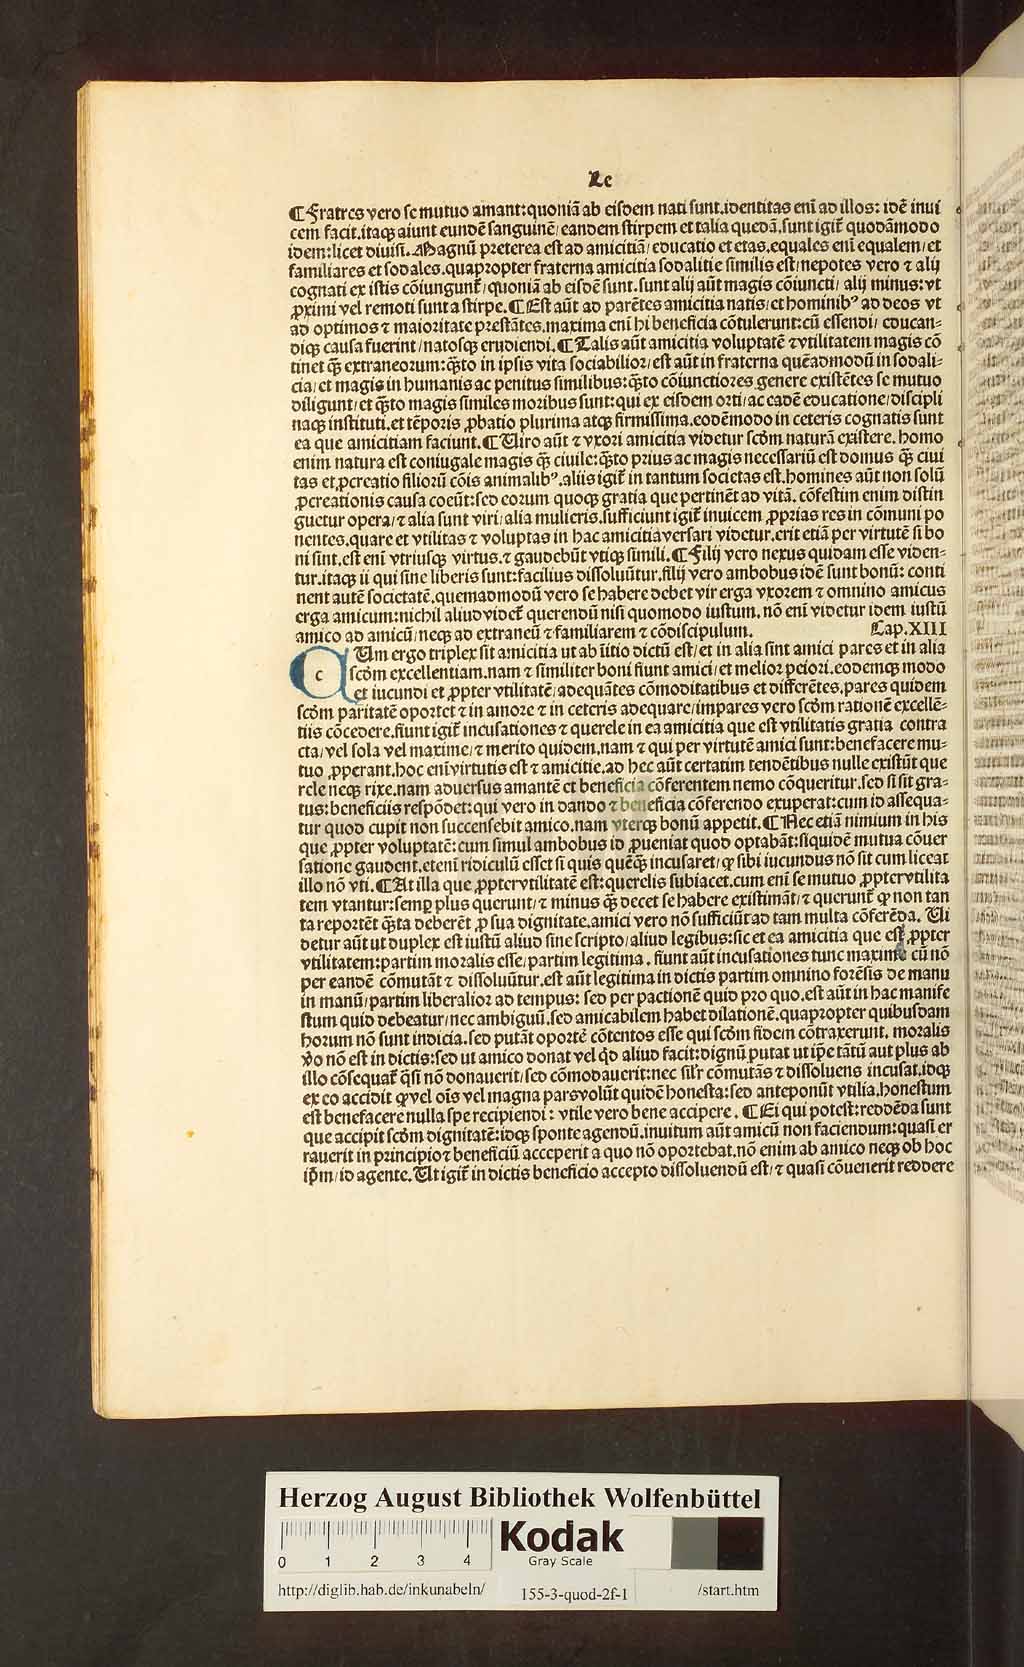 Le
¶Fratres vero se mutuo amant:quoniã ab eisdem nati sunt.identitas eni᷈ ad illos: idẽ inui
cem facit.itaqꝫ aiunt eundẽ sanguinẽ/ eandem stirpem et talia quedã.sunt igit᷑ quodãmodo
idem:licet diuisi.Magnũ preterea est ad amicitiã/ educatio et etas.equales eni᷈ equalem/ et
familiares et sodales.quapropter fraterna amicitia sodalitie similis est/nepotes vero ⁊ alij
cognati ex istis cõiungunt᷑/ quoniã ab eisdẽ sunt.sunt alij aũt magis cõiuncti/ alij minus:vt
ꝓximi vel remoti sunt a stirpe.¶Est aũt ad parẽtes amicitia natis/et hominibꝰ ad deos vt
ad optimos ⁊ maioritate prestãtes.maxima eni᷈ hi beneficia cõtulerunt:cũ essendi/ educan-
diqꝫ causa fuerint/natosqꝫ erudiendi.¶Talis aũt amicitia voluptatẽ ⁊vtilitatem magis cõ
tinet q̃ꝫ extraneorum:q̃ꝫto in ipsis vita sociabilior/est aũt in fraterna quẽadmodũ in sodali-
cia/et magis in humanis ac penitus similibus:q̃ꝫto cõiunctiores genere existẽtes se mutuo
diligunt/et q̃ꝫto magis similes moribus sunt:qui ex eisdem orti/ac eadẽ educatione/discipli
naqꝫ instituti.et tẽporis ꝓbatio plurima atqꝫ firmissima.eodẽmodo in ceteris cognatis sunt
ea que amicitiam faciunt.¶Uiro aũt ⁊ vxori amicitia videtur scd᷈m naturã existere. homo
enim natura est coniugale magis q̃ꝫ ciuile:q̃ꝫto prius ac magis necessariũ est domus q̃ꝫ ciui
tas et ꝓcreatio filiorũ cõis animalibꝰ.aliis igit᷑ in tantum societas est.homines aũt non solũ
ꝓcreationis causa coeũt:sed eorum quoqꝫ gratia que pertinẽt ad vitã. cõfestim enim distin
guetur opera/⁊ alia sunt viri/alia mulieris.sufficiunt igit᷑ inuicem ꝓprias res in cõmuni po
nentes.quare et vtilitas ⁊ voluptas in hac amicitia versari videtur.erit etiã per virtutẽ si bo
ni sint.est eni᷈ vtriusqꝫ virtus.⁊ gaudebũt vtiqꝫ simili.¶Filij vero nexus quidam esse viden-
tur.itaqꝫ ii qui sine liberis sunt:facilius dissoluũtur.filij vero ambobus idẽ sunt bonũ: conti
nent autẽ societatẽ.quemadmodũ vero se habere debet vir erga vxorem ⁊ omnino amicus
erga amicum:nichil aliud videt᷑ querendũ nisi quomodo iustum. nõ eni᷈ videtur idem iustũ
amico ad amicũ/neqꝫ ad extraneũ ⁊ familiarem ⁊ cõdiscipulum. Cap.XIII
CUm ergo triplex sit amicitia ut ab i᷈itio dictũ est/et in alia sint amici pares et in alia
scd᷈m excellentiam.nam ⁊ similiter boni fiunt amici/et melior peiori.eodemqꝫ modo
et iucundi et ꝓpter vtilitatẽ/adequãtes cõmoditatibus et differẽtes.pares quidem
scd᷈m paritatẽ oportet ⁊ in amore ⁊ in ceteris adequare/impares vero scd᷈m rationẽ excellẽ-
tiis cõcedere.fiunt igit᷑ incusationes ⁊ querele in ea amicitia que est vtilitatis gratia contra
cta/vel sola vel maxime/⁊ merito quidem.nam ⁊ qui per virtutẽ amici sunt:benefacere mu-
tuo ꝓperant.hoc eni᷈ virtutis est ⁊ amicitie.ad hec aũt certatim tendẽtibus nulle existũt que
rele neqꝫ rixe.nam aduersus amantẽ et beneficia cõferentem nemo cõqueritur.sed si sit gra-
tus:beneficiis respõdet:qui vero in dando ⁊ beneficia cõferendo exuperat:cum id assequa-
tur quod cupit non succensebit amico.nam vterqꝫ bonũ appetit.¶Nec etiã nimium in his
que ꝓpter voluptatẽ:cum simul ambobus id ꝓueniat quod optabãt:siquidẽ mutua cõuer
satione gaudent.eteni᷈ ridiculũ esset si quis quẽqꝫ̃ incusaret/ꝙ sibi iucundus nõ sit cum liceat
illo nõ vti.¶At illa que ꝓpter vtilitatẽ est:querelis subiacet.cum eni᷈ se mutuo ꝓpter vtilita
tem vtantur:semꝑ plus querunt/⁊ minus q̃ꝫ decet se habere existimãt/⁊ querunt᷑ ꝙ non tan
ta reportẽt q̃ꝫta deberẽt ꝓ sua dignitate.amici vero nõ sufficiũt ad tam multa cõferẽda. Ui
detur aũt ut duplex est iustũ aliud sine scripto/aliud legibus:sic et ea amicitia que est ꝓpter
vtilitatem:partim moralis esse/partim legitima. fiunt aũt incusationes tunc maxime cũ nõ
per eandẽ cõmutãt ⁊ dissoluũtur.est aũt legitima in dictis partim omnino forẽsis de manu
in manũ/partim liberalior ad tempus: sed per pactionẽ quid pro quo.est aũt in hac manife
stum quid debeatur/nec ambiguũ.sed amicabilem habet dilationẽ.quapropter quibusdam
horum nõ sunt iudicia.sed putãt oportẽ cõtentos esse qui scd᷈m fidem cõtraxerunt. moralis
v̓o nõ est in dictis:sed ut amico donat vel q̓d aliud facit:dignũ putat ut ip᷈e tãtũ aut plus ab
illo cõsequat᷑ q̃si nõ donauerit/sed cõmodauerit:nec sil᷈r cõmutãs ⁊ dissoluens incusat.idqꝫ
ex eo accidit ꝙ vel oi᷈s vel magna pars volũt quidẽ honesta:sed anteponũt vtilia.honestum
est benefacere nulla spe recipiendi: vtile vero bene accipere. ¶Ei qui potest:reddẽda sunt
que accipit scd᷈m dignitatẽ:idqꝫ sponte agendũ.inuitum aũt amicũ non faciendum:quasi er
rauerit in principio⁊ beneficiũ acceperit a quo nõ oportebat.nõ enim ab amico neqꝫ ob hoc
ip᷈m/id agente. Ut igit᷑ in dictis beneficio accepto dissoluendũ est/⁊ quasi cõuenerit reddere
Herzog August Bibliothek Wolfenbüttel
0 1 2 3 4
Kodak
Gray Scale
http://diglib.hab.de/inkunabeln/ 155-3-quod-2f-1 /start.htm